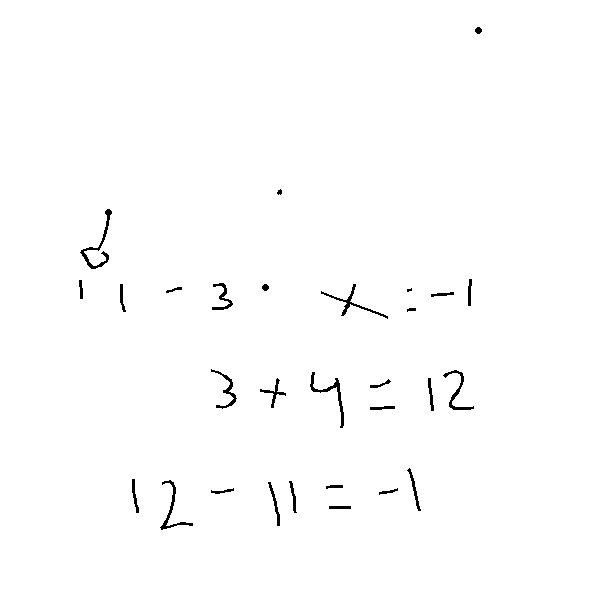 11 - 3 · x = -1
3 + 4 = 12
12 - 11 = -1